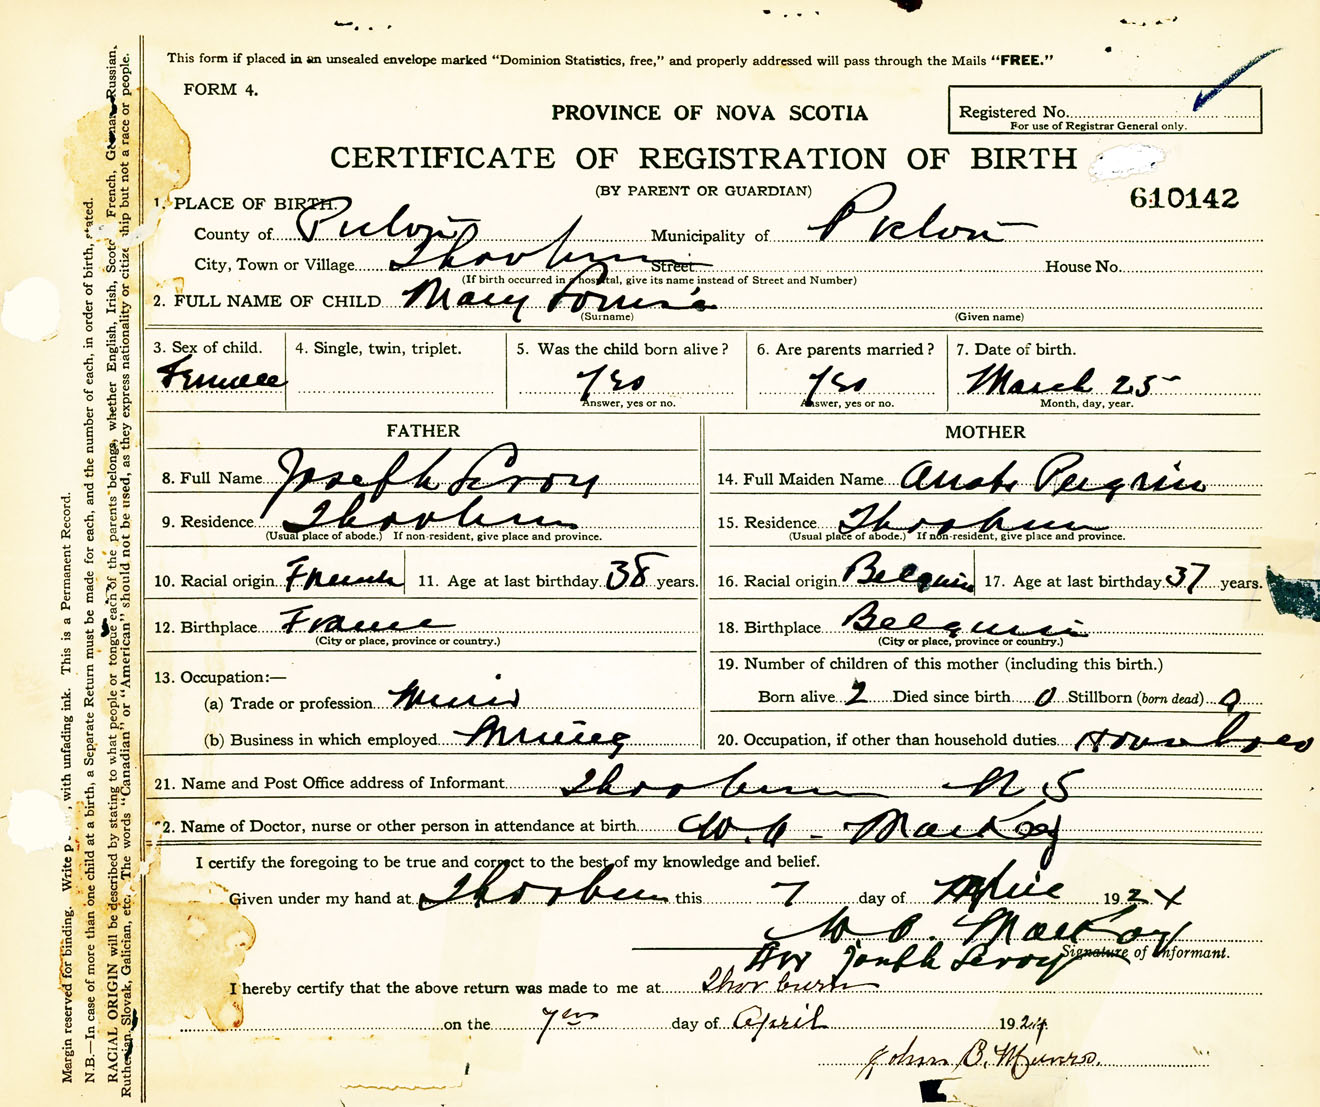 This form if placed in an unsealed envelope marked "Dominion Statistics, free," and properly addressed will pass through the Mails "FREE."
FORM 4.
PROVINCE OF NOVA SCOTIA
Registered No.
For use of Registrar General only.
CERTIFICATE OF REGISTRATION OF BIRTH
(BY PARENT OR GUARDIAN)
610142
1. PLACE OF BIRTH.
County of Pictou Municipality of Pictou
City, Town or Village Thorburn Street House No.
(If birth occurred in a hospital, give its name instead of Street and Number)
2. FULL NAME OF CHILD Mary Louisa
(Surname) (Given name)
3. Sex of child. 4. Single, twin, triplet. 5. Was the child born alive? 6. Are parents married? 7. Date of birth.
Female Yes Yes March 25
Answer, yes or no. Answer, yes or no. Month, day, year.
FATHER MOTHER
8. Full Name Joseph Leroy 14. Full Maiden Name
9. Residence Thorburn 15. Residence Thorburn
(Usual place of abode.) If non-resident, give place and province. (Usual place of abode.) If non-resident, give place and province.
10. Racial origin French 11. Age at last birthday 38 years. 16. Racial origin Belgium 17. Age at last birthday 37 years.
12. Birthplace France 18. Birthplace Belgium
(City or place, province or country.) (City or place, province or country.)
13. Occupation:— 19. Number of children of this mother (including this birth.)
(a) Trade or profession Miner Born alive 2 Died since birth 0 Stillborn (born dead) 0
(b) Business in which employed Mining 20. Occupation, if other than household duties
21. Name and Post Office address of Informant Thorburn N S
2. Name of Doctor, nurse or other person in attendance at birth MacKay
I certify the foregoing to be true and correct to the best of my knowledge and belief.
Given under my hand at Thorburn this 7 day of April 1924
MacKay
for Joseph Leroy Signature of Informant.
I hereby certify that the above return was made to me at Thorburn
on the 7th day of April 1924
John B. Munro.
Margin reserved for binding. Write with unfading ink. This is a Permanent Record.
N.B.—In case of more than one child at a birth, a Separate Return must be made for each, and the number of each, in order of birth, stated.
RACIAL ORIGIN will be described by stating to what people or tongue each of the parents belongs, whether English, Irish, Scotch, French, German, Russian,
Ruthenian, Slovak, Galician, etc. The words "Canadian" or "American" should not be used, as they express nationality or citizenship but not a race or people.